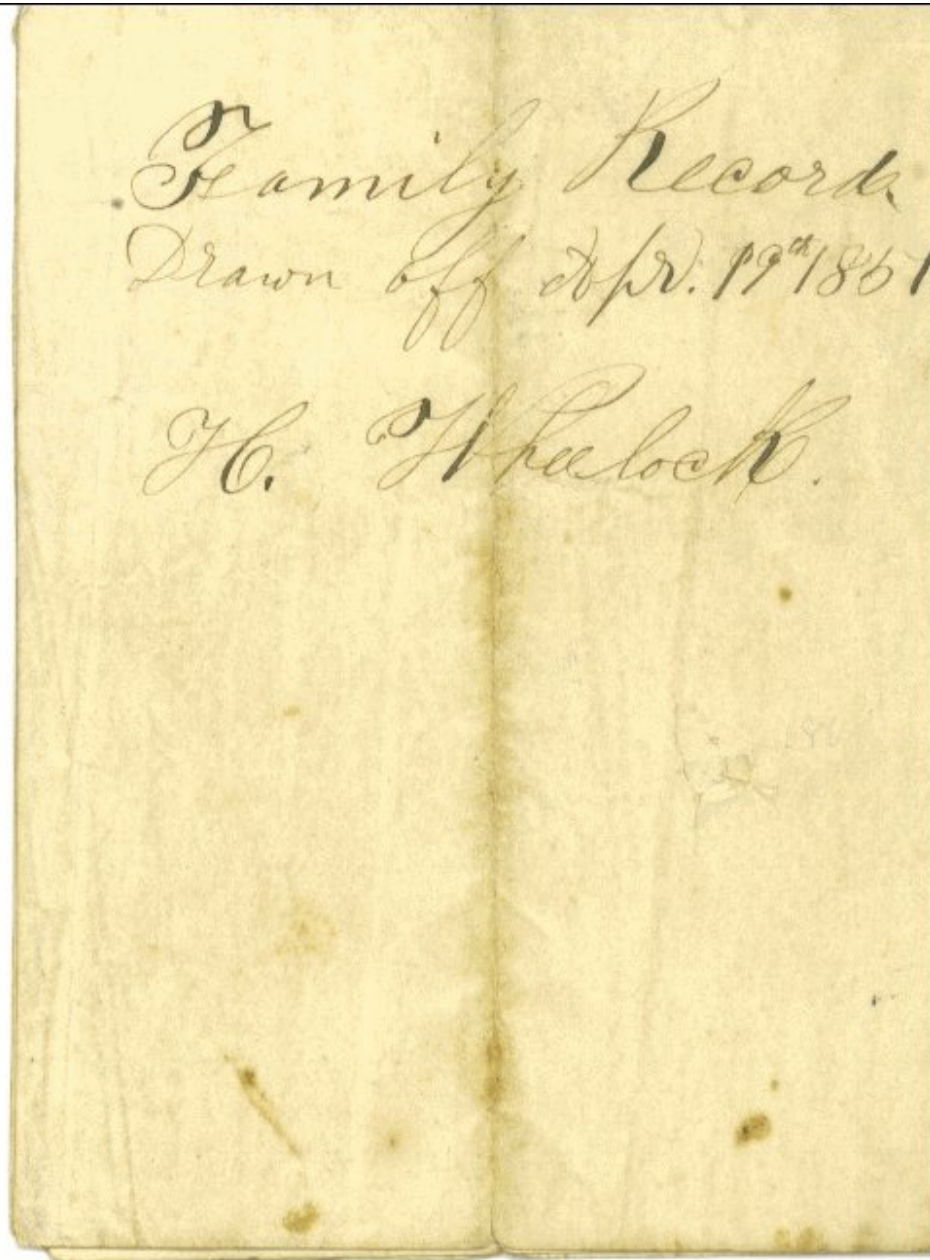 Family Record.
Drawn off Apr. 19th 1851
H. Wheelock.